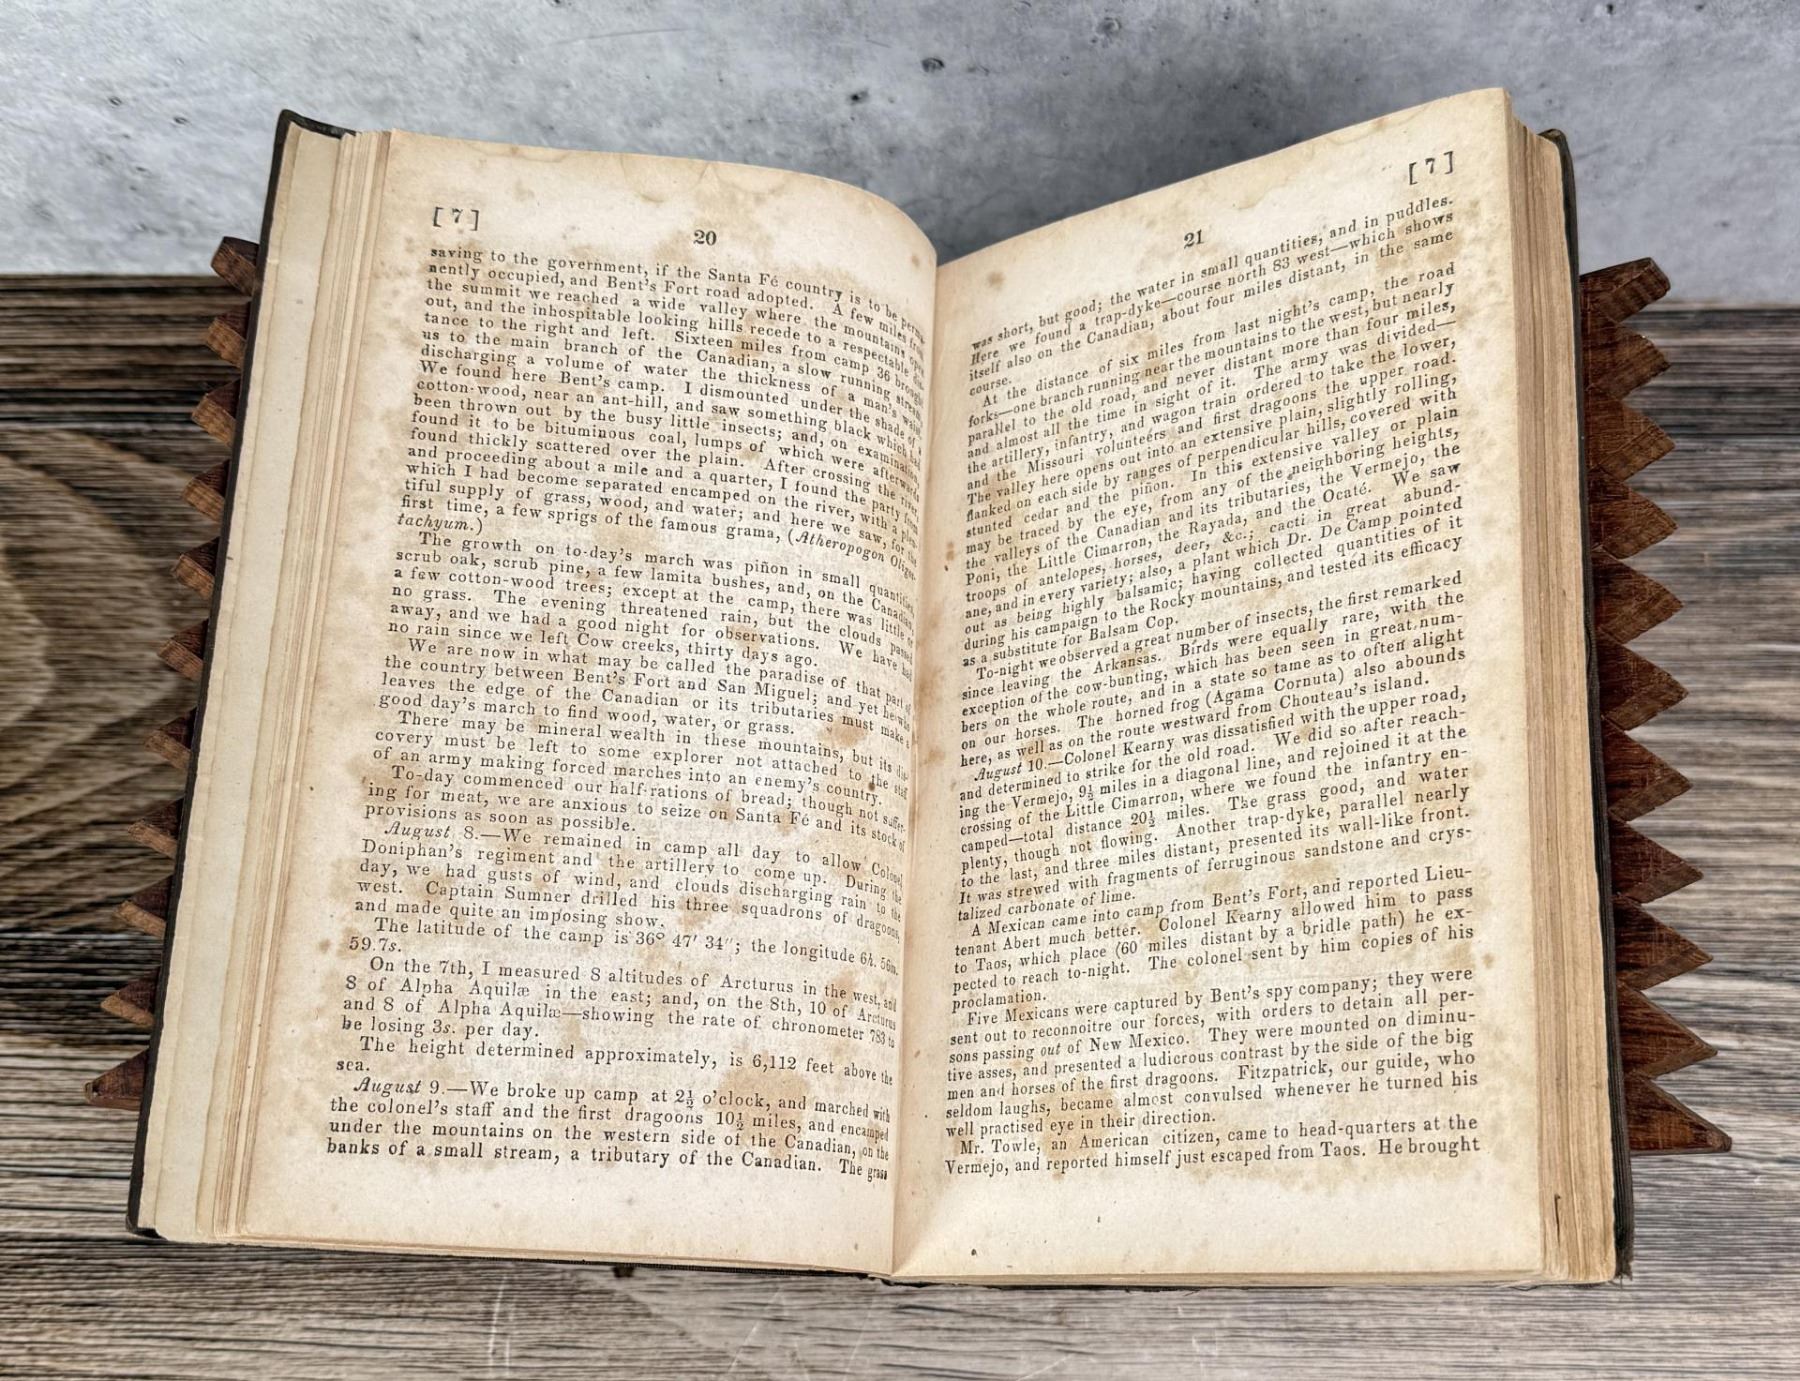 [ 7 ]
20
saving to the government, if the Santa Fé country is to be perma-
nently occupied, and Bent's Fort road adopted. A few miles from
the summit we reached a wide valley where the mountains open
out, and the inhospitable looking hills recede to a respectable dis-
tance to the right and left. Sixteen miles from camp 36 brought
us to the main branch of the Canadian, a slow running stream
discharging a volume of water the thickness of a man's waist
We found here Bent's camp. I dismounted under the shade of a
cotton-wood, near an ant-hill, and saw something black which had
been thrown out by the busy little insects; and, on examination,
found it to be bituminous coal, lumps of which were afterwards
found thickly scattered over the plain. After crossing the river,
and proceeding about a mile and a quarter, I found the party from
which I had become separated encamped on the river, with a plen-
tiful supply of grass, wood, and water; and here we saw, for the
first time, a few sprigs of the famous grama, (Atheropogon Oligos-
tachyum.)
The growth on to-day's march was piñon in small quantities,
scrub oak, scrub pine, a few lamita bushes, and, on the Canadian,
a few cotton-wood trees; except at the camp, there was little or
no grass. The evening threatened rain, but the clouds passed
away, and we had a good night for observations. We have had
no rain since we left Cow creeks, thirty days ago.
We are now in what may be called the paradise of that part of
the country between Bent's Fort and San Miguel; and yet he who
leaves the edge of the Canadian or its tributaries must make a
good day's march to find wood, water, or grass.
There may be mineral wealth in these mountains, but its dis-
covery must be left to some explorer not attached to the staff
of an army making forced marches into an enemy's country.
To-day commenced our half-rations of bread; though not suffer-
ing for meat, we are anxious to seize on Santa Fé and its stock of
provisions as soon as possible.
August 8.—We remained in camp all day to allow Colonel
Doniphan's regiment and the artillery to come up. During the
day, we had gusts of wind, and clouds discharging rain to the
west. Captain Sumner drilled his three squadrons of dragoons,
and made quite an imposing show.
The latitude of the camp is 36° 47' 34"; the longitude 6h. 56m.
59.7s.
On the 7th, I measured 8 altitudes of Arcturus in the west, and
8 of Alpha Aquilæ in the east; and, on the 8th, 10 of Arcturus
and 8 of Alpha Aquilæ—showing the rate of chronometer 783 to
be losing 3s. per day.
The height determined approximately, is 6,112 feet above the
sea.
August 9.—We broke up camp at 2½ o'clock, and marched with
the colonel's staff and the first dragoons 10½ miles, and encamped
under the mountains on the western side of the Canadian, on the
banks of a small stream, a tributary of the Canadian. The grass
[ 7 ]
21
was short, but good; the water in small quantities, and in puddles.
Here we found a trap-dyke—course north 83 west—which shows
itself also on the Canadian, about four miles distant, in the same
course.
At the distance of six miles from last night's camp, the road
forks—one branch running near the mountains to the west, but nearly
parallel to the old road, and never distant more than four miles,
and almost all the time in sight of it. The army was divided—
the artillery, infantry, and wagon train ordered to take the lower,
and the Missouri volunteers and first dragoons the upper road.
The valley here opens out into an extensive plain, slightly rolling,
flanked on each side by ranges of perpendicular hills, covered with
stunted cedar and the piñon. In this extensive valley or plain
may be traced by the eye, from any of the neighboring heights,
the valleys of the Canadian and its tributaries, the Vermejo, the
Poni, the Little Cimarron, the Rayada, and the Ocaté. We saw
troops of antelopes, horses, deer, &c.; cacti in great abund-
ane, and in every variety; also, a plant which Dr. De Camp pointed
out as being highly balsamic; having collected quantities of it
during his campaign to the Rocky mountains, and tested its efficacy
as a substitute for Balsam Cop.
To-night we observed a great number of insects, the first remarked
since leaving the Arkansas. Birds were equally rare, with the
exception of the cow-bunting, which has been seen in great num-
bers on the whole route, and in a state so tame as to often alight
on our horses. The horned frog (Agama Cornuta) also abounds
here, as well as on the route westward from Chouteau's island.
August 10.—Colonel Kearny was dissatisfied with the upper road,
and determined to strike for the old road. We did so after reach-
ing the Vermejo, 9½ miles in a diagonal line, and rejoined it at the
crossing of the Little Cimarron, where we found the infantry en-
camped—total distance 20½ miles. The grass good, and water
plenty, though not flowing. Another trap-dyke, parallel nearly
to the last, and three miles distant, presented its wall-like front.
It was strewed with fragments of ferruginous sandstone and crys-
talized carbonate of lime.
A Mexican came into camp from Bent's Fort, and reported Lieu-
tenant Abert much better. Colonel Kearny allowed him to pass
to Taos, which place (60 miles distant by a bridle path) he ex-
pected to reach to-night. The colonel sent by him copies of his
proclamation.
Five Mexicans were captured by Bent's spy company; they were
sent out to reconnoitre our forces, with orders to detain all per-
sons passing out of New Mexico. They were mounted on diminu-
tive asses, and presented a ludicrous contrast by the side of the big
men and horses of the first dragoons. Fitzpatrick, our guide, who
seldom laughs, became almost convulsed whenever he turned his
well practised eye in their direction.
Mr. Towle, an American citizen, came to head-quarters at the
Vermejo, and reported himself just escaped from Taos. He brought